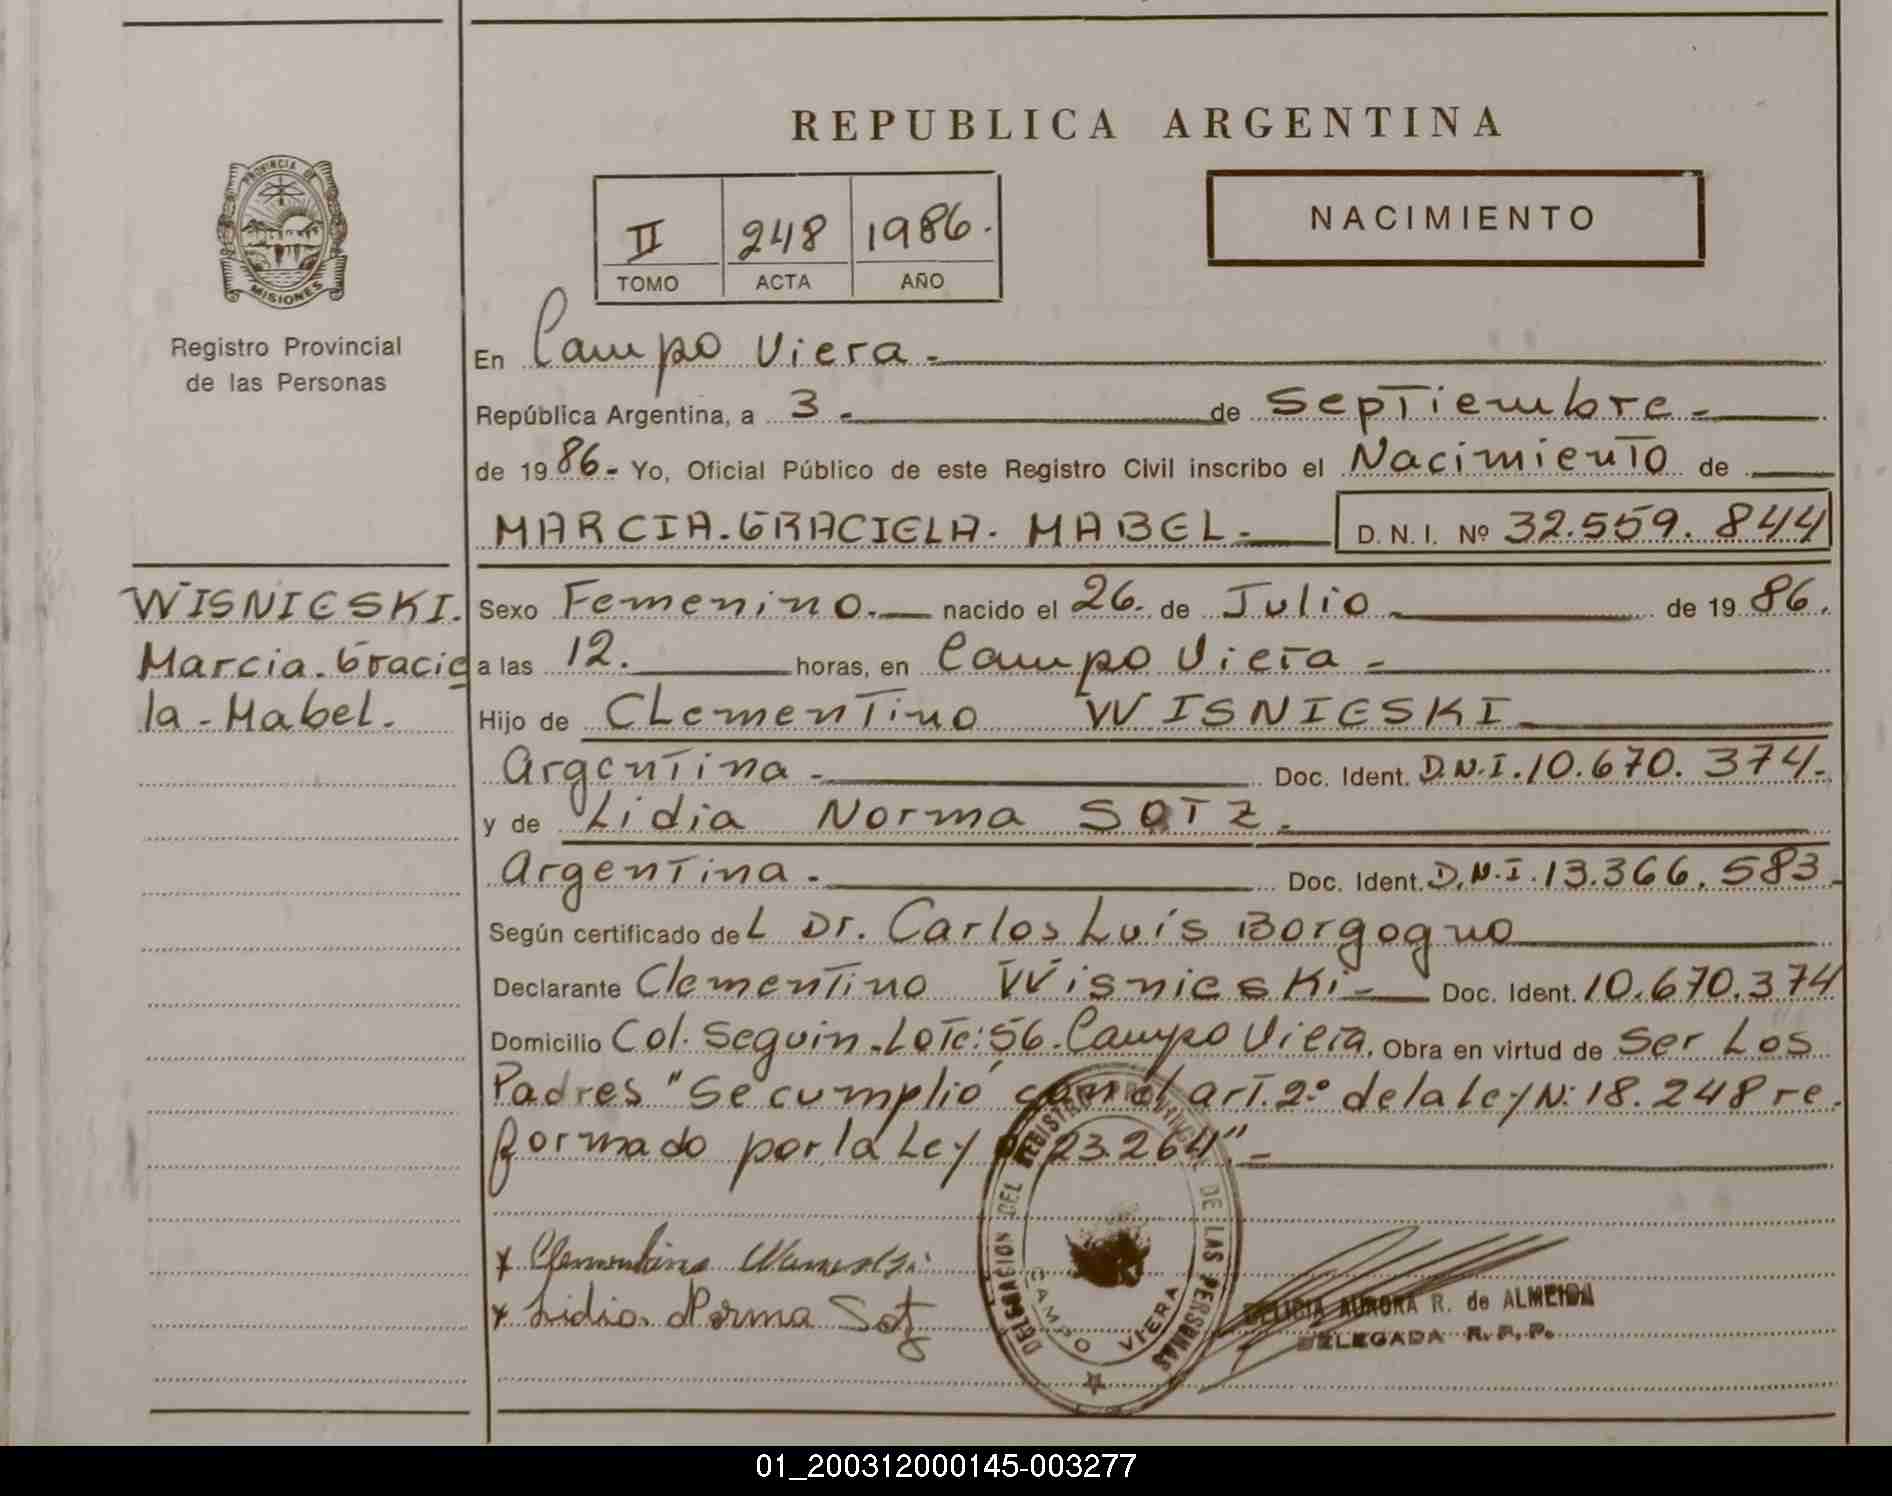 REPUBLICA ARGENTINA
PROVINCIA DE
MISIONES
Registro Provincial
de las Personas
II 248 1986.
TOMO ACTA AÑO
NACIMIENTO
En Campo Viera.
República Argentina, a 3 . de Septiembre.
de 19 86. Yo, Oficial Público de este Registro Civil inscribo el Nacimiento de
MARCIA. GRACIELA. MABEL. D. N. I. Nº 32.559.844
WISNIESKI.
Marcia. Gracie
la - Mabel.
Sexo Femenino. nacido el 26. de Julio de 19 86.
a las 12. horas, en Campo Viera -
Hijo de CLementino WISNIESKI
Argentina. Doc. Ident. D.N.I. 10.670.374.
y de Lidia Norma SOTZ.
Argentina. Doc. Ident. D.N.I. 13.366.583.
Según certificado deL Dr. Carlos Luis Borgogno
Declarante Clementino Wisnieski- Doc. Ident. 10.670.374
Domicilio Col. Seguin. Lote: 56. Campo Viera. Obra en virtud de Ser Los
Padres "Se cumplió con el art. 2º de la Ley N: 18.248 re
formado por la Ley 23.264".
x Clementino Wisnieski
x Lidia Norma Sotz
DELEGACION DEL REGISTRO PROVINCIAL DE LAS PERSONAS
CAMPO VIERA
DELICIA AURORA R. de ALMEIDA
DELEGADA R.P.P.
01_200312000145-003277